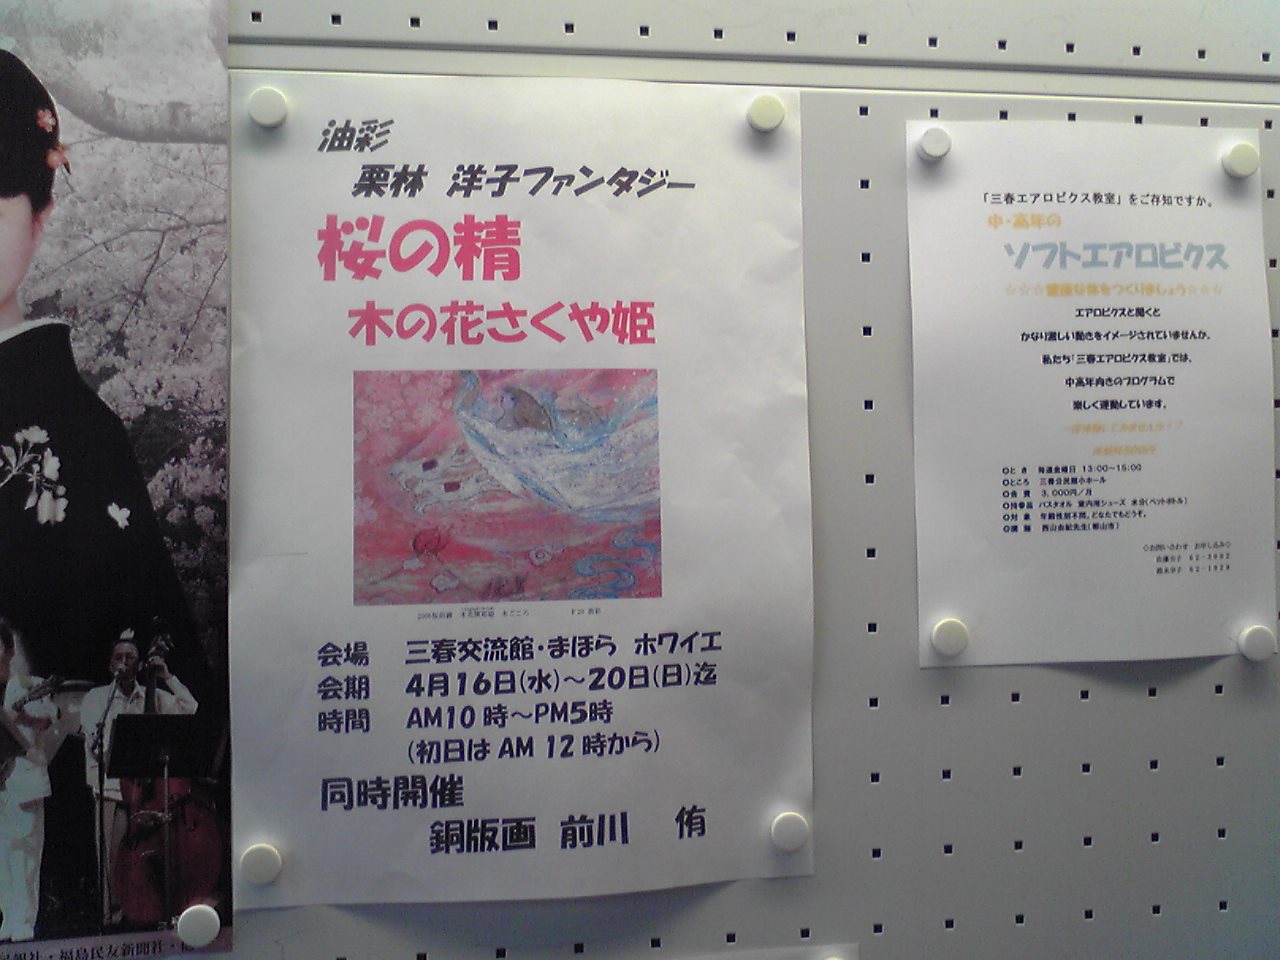 油彩
栗林 洋子ファンタジー
桜の精
木の花さくや姫
F20 油彩
会場 三春交流館・まほら ホワイエ
会期 4月16日(水)〜20日(日)迄
時間 AM10時〜PM5時
(初日は AM 12時から)
同時開催
銅版画 前川 侑
「三春エアロビクス教室」をご存知ですか。
中・高年の
ソフトエアロビクス
☆☆☆健康な体をつくりましょう☆☆☆
エアロビクスと聞くと
かなり激しい動きをイメージされていませんか。
私たち「三春エアロビクス教室」では、
中高年向きのプログラムで
楽しく運動しています。
一度体験してみませんか！？
○とき 毎週金曜日 13:00〜15:00
○ところ 三春公民館小ホール
○会費 3,000円／月
○持参品 バスタオル 室内用シューズ 水分(ペットボトル)
○対象 年齢性別不問。どなたでもどうぞ。
○講師 西山由紀先生(郡山市)
◇お問い合わせ お申し込み◇
62-3002
62-1929
福島民友新聞社・